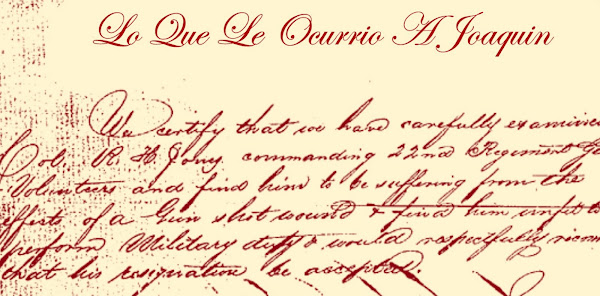 Lo Que Le Ocurrio A Joaquin
We certify that we have carefully examined
Col. R. H. Jones commanding 22nd Regiment Ga
Volunteers and find him to be suffering from the
effects of a Gun shot wound & find him unfit to
perform Military duty & would respectfully recom
that his resignation be accepted.